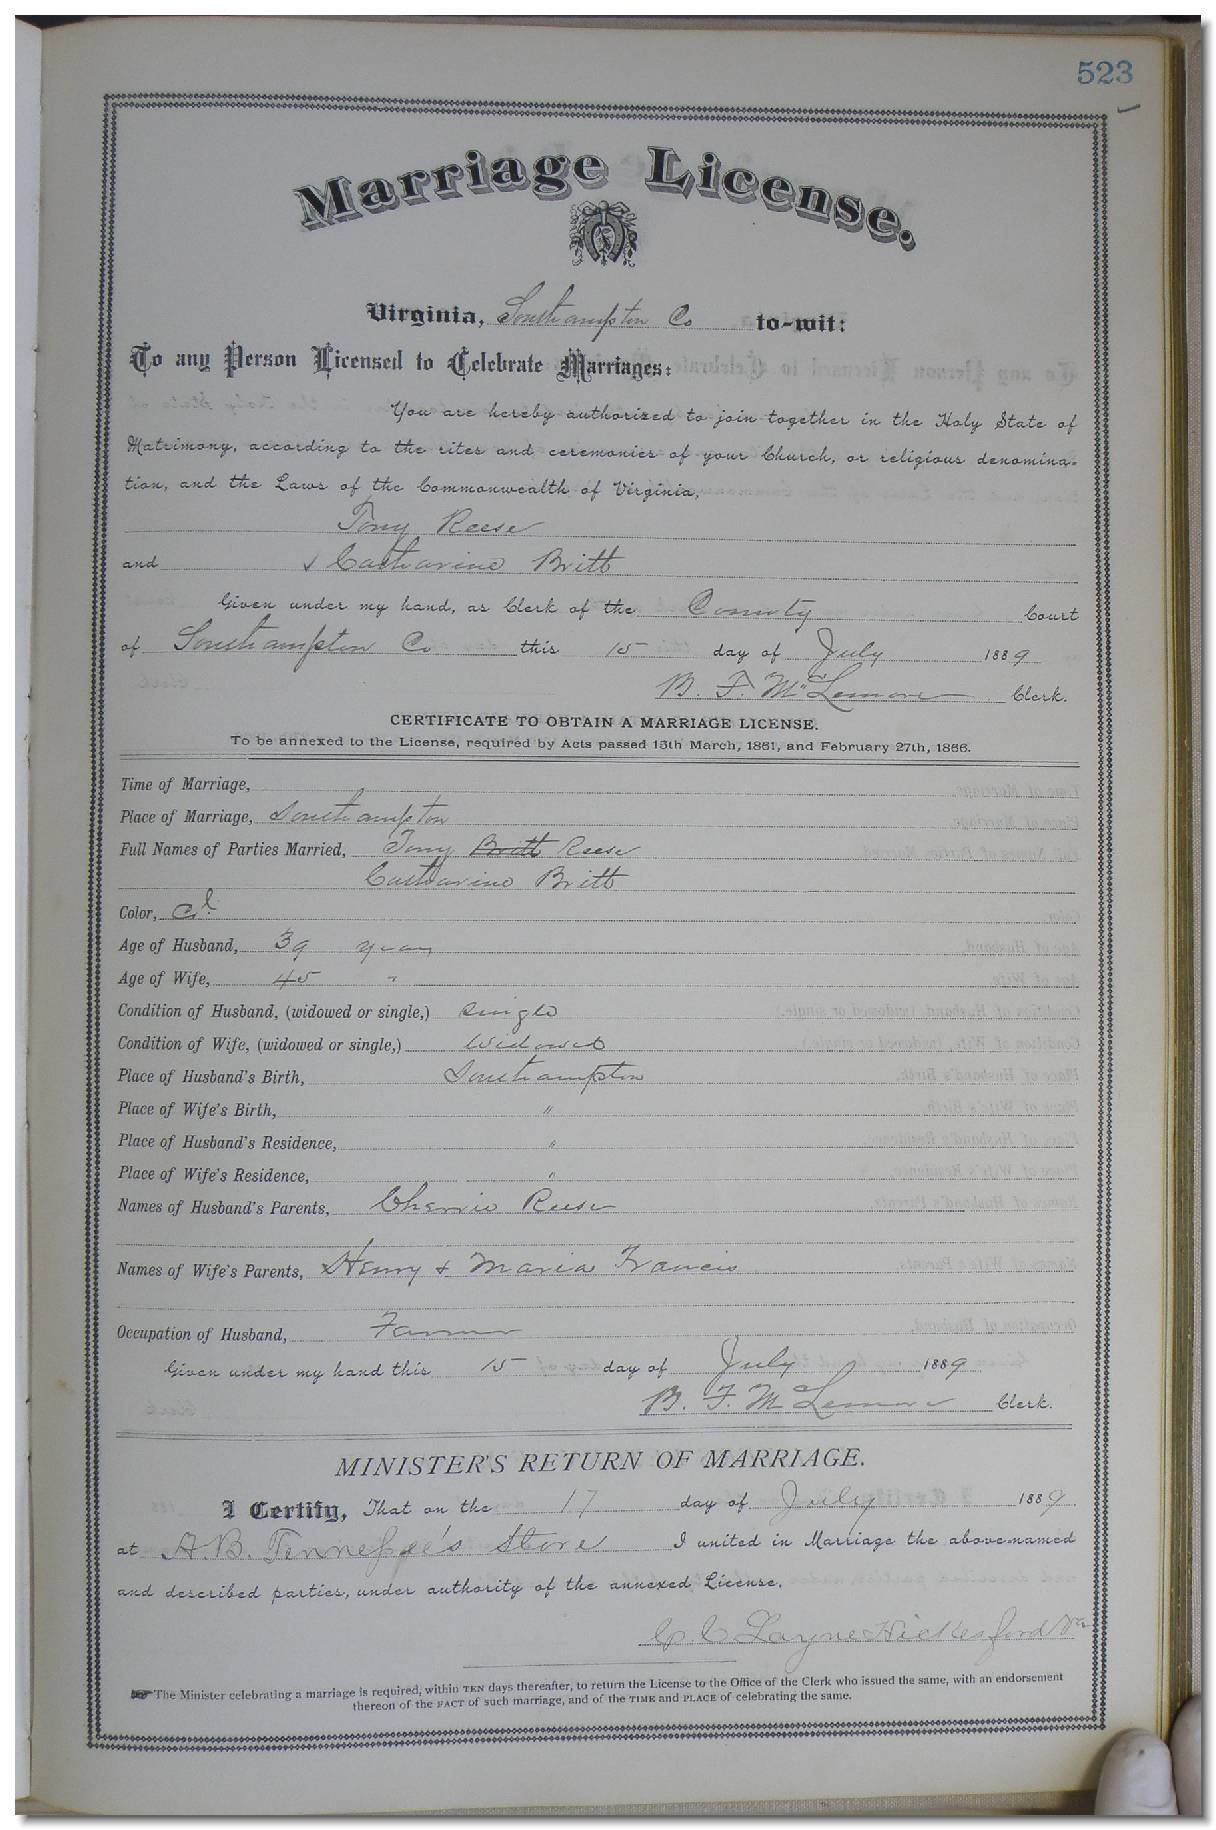 523
Marriage License.
Virginia, Southampton Co to-wit:
To any Person Licensed to Celebrate Marriages:
You are hereby authorized to join together in the Holy State of
Matrimony, according to the rites and ceremonies of your Church, or religious denomina-
tion, and the Laws of the Commonwealth of Virginia,
Tony Reese
and Catharine Britt
Given under my hand, as Clerk of the County Court
of Southampton Co this 15 day of July 1889
B. F. McLemore Clerk.
CERTIFICATE TO OBTAIN A MARRIAGE LICENSE.
To be annexed to the License, required by Acts passed 15th March, 1861, and February 27th, 1866.
Time of Marriage,
Place of Marriage, Southampton
Full Names of Parties Married, Tony Britt Reese
Catharine Britt
Color, Col
Age of Husband, 39 years
Age of Wife, 45 "
Condition of Husband, (widowed or single,) single
Condition of Wife, (widowed or single,) Widowed
Place of Husband's Birth, Southampton
Place of Wife's Birth, "
Place of Husband's Residence, "
Place of Wife's Residence, "
Names of Husband's Parents, Reese
Names of Wife's Parents, Henry & Maria Francis
Occupation of Husband, Farmer
Given under my hand this 15 day of July 1889
B. F. McLemore Clerk.
MINISTER'S RETURN OF MARRIAGE.
I Certify, That on the 17 day of July 1889
at A. B. Store I united in Marriage the above-named
and described parties, under authority of the annexed License.
C. C. Layne Hicksford Va
The Minister celebrating a marriage is required, within TEN days thereafter, to return the License to the Office of the Clerk who issued the same, with an endorsement
thereon of the FACT of such marriage, and of the TIME and PLACE of celebrating the same.